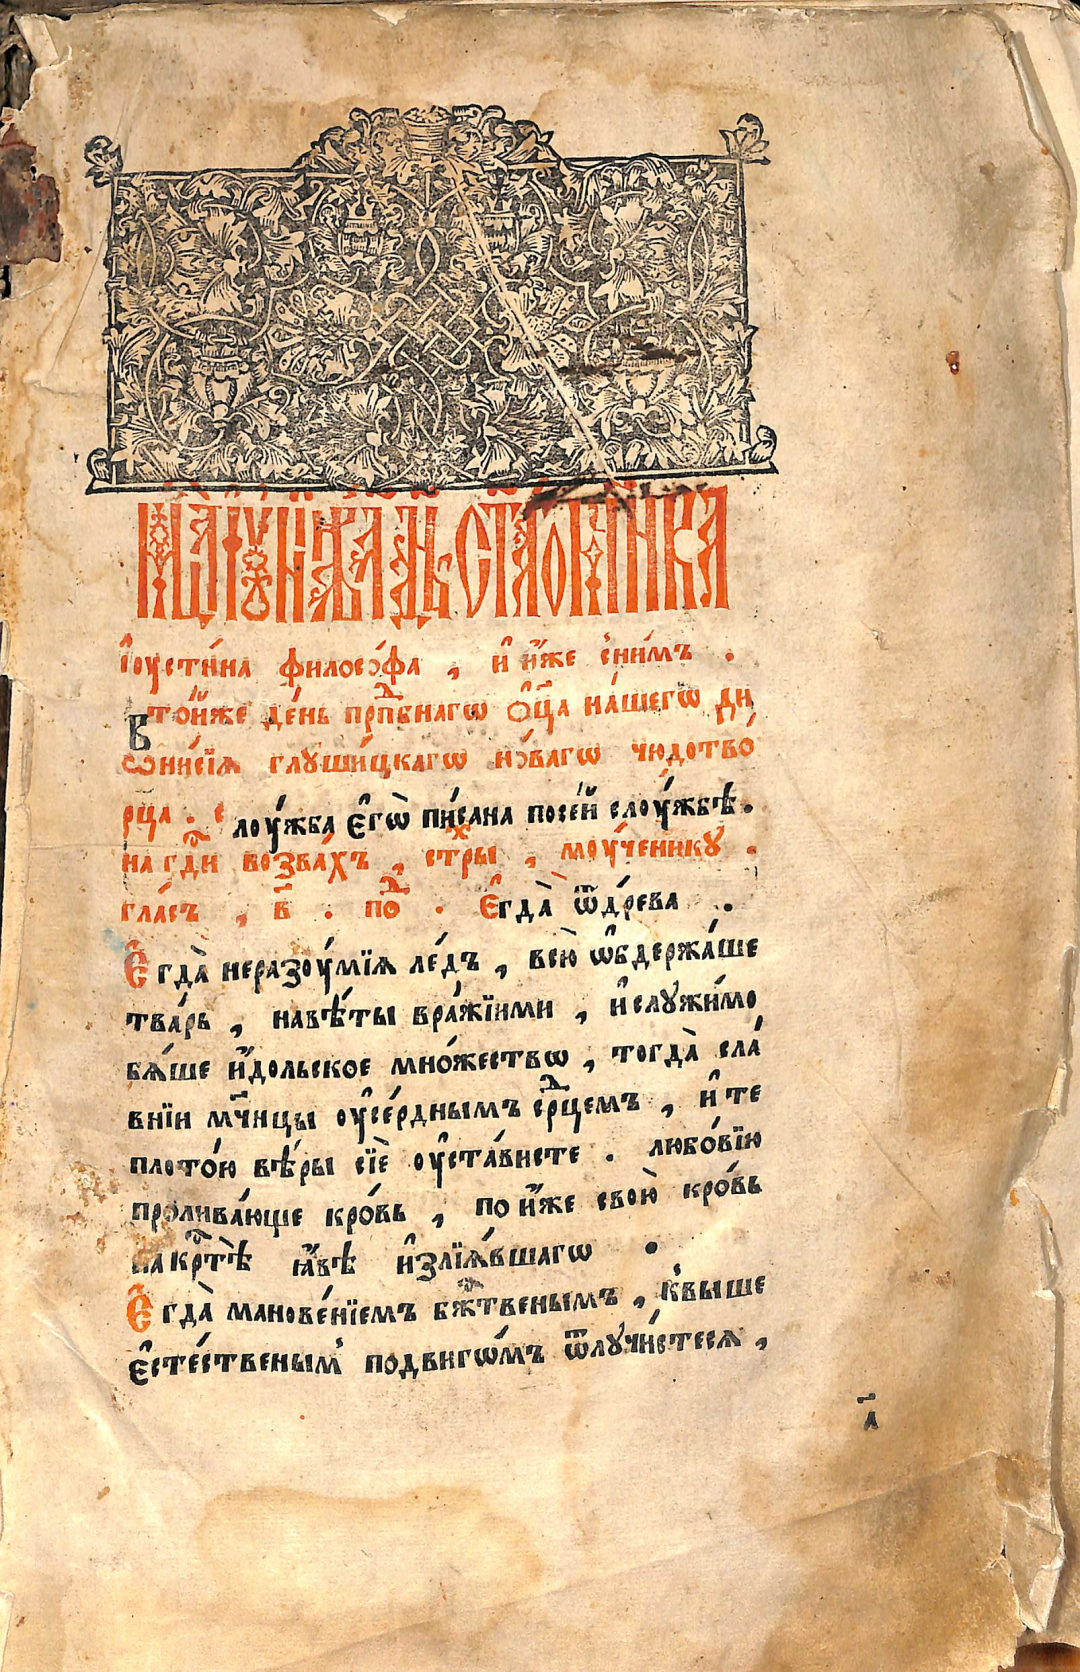 мц҃а і҆у́нїѧ, въ а҃ дн҃ь ст҃агѡ мч҃нка
і҆оусти́на филосо́фа , и҆ и҆́же с ни́мъ .
В то́йже де́нь прпⷣбнагѡ ѻ҆ц҃а на́шегѡ ди
ѡни́сїѧ глуши́цкагѡ но́вагѡ чюдотво́
рца . слоу́жба є҆гѡ̀ пи́сана посе́й слоу́жбѣ .
на гдⷭ҇и возва́хъ , стⷯры , моу́ченику .
гла́съ , в҃ . поⷣ . Є҆гда̀ ѿдре́ва .
Є҆гда̀ неразоу́мїѧ ле́дъ , всю̀ ѡ҆бдержа́ше
тва́рь , навѣ́ты вра́жїими , и҆ служи́мо
бѧ́ше и҆́дольское мно́жествѡ , тогда̀ сла́
внїи мч҃ницы оу҆се́рднымъ срⷣцемъ , и҆ те
плото́ю вѣ́ры сїѐ оу҆ста́висте . любо́вїю
пролива́юще кро́вь , по и҆́же свою̀ кро́вь
на крⷭ҇тѣ̀ ꙗ҆́вѣ и҆злїѧ́вшагѡ .
Є҆гда̀ манове́нїемъ бжⷭ҇твенымъ , к вы́ше
є҆сте́ственым подвигѡ́мъ ѿлучи́стесѧ ,
а҃